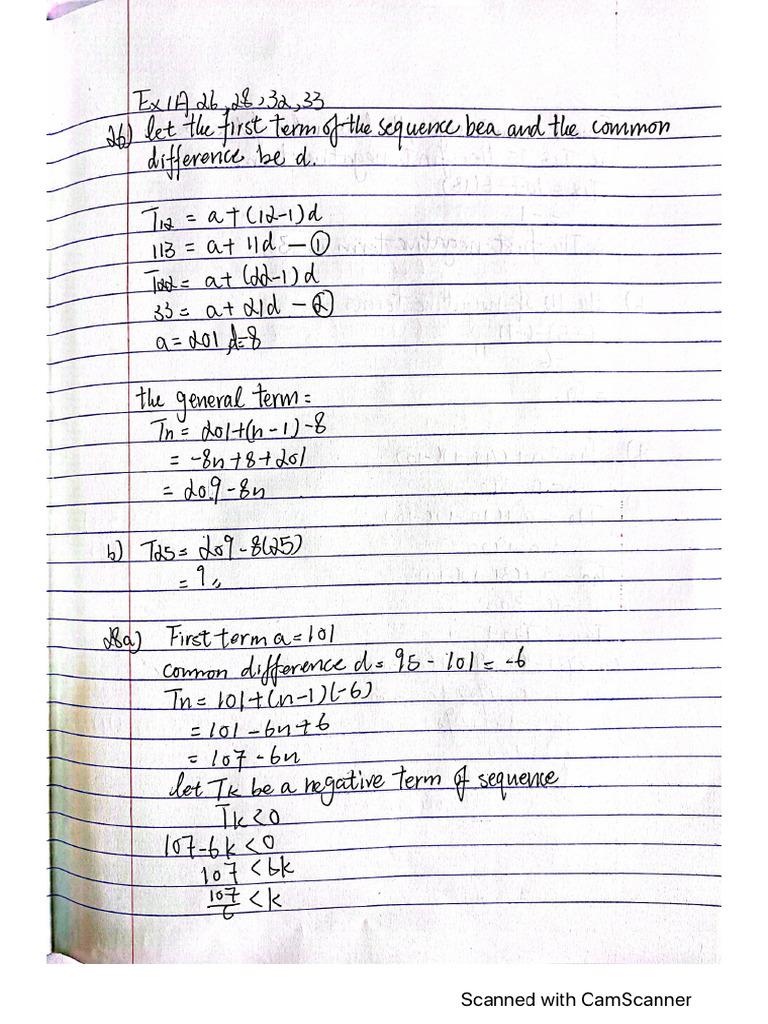 Ex 1A 26, 28, 32, 33
26) let the first term of the sequence be a and the common
difference be d.
T12 = a + (12-1)d
113 = a + 11d — ①
T22 = a + (22-1)d
33 = a + 21d — ②
a = 201, d=8
the general term =
Tn = 201+(n-1)-8
= -8n+8+201
= 209-8n
b) T25 = 209-8(25)
= 9
28a) First term a = 101
common difference d = 95 - 101 = -6
Tn = 101+(n-1)(-6)
= 101-6n+6
= 107-6n
let Tk be a negative term of sequence
Tk<0
107-6k<0
107 < 6k
107/6 < k
Scanned with CamScanner